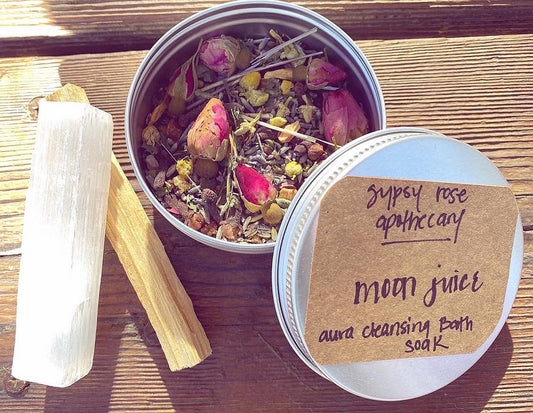 gypsy rose
apothecary
moon juice
aura cleansing Bath
soak